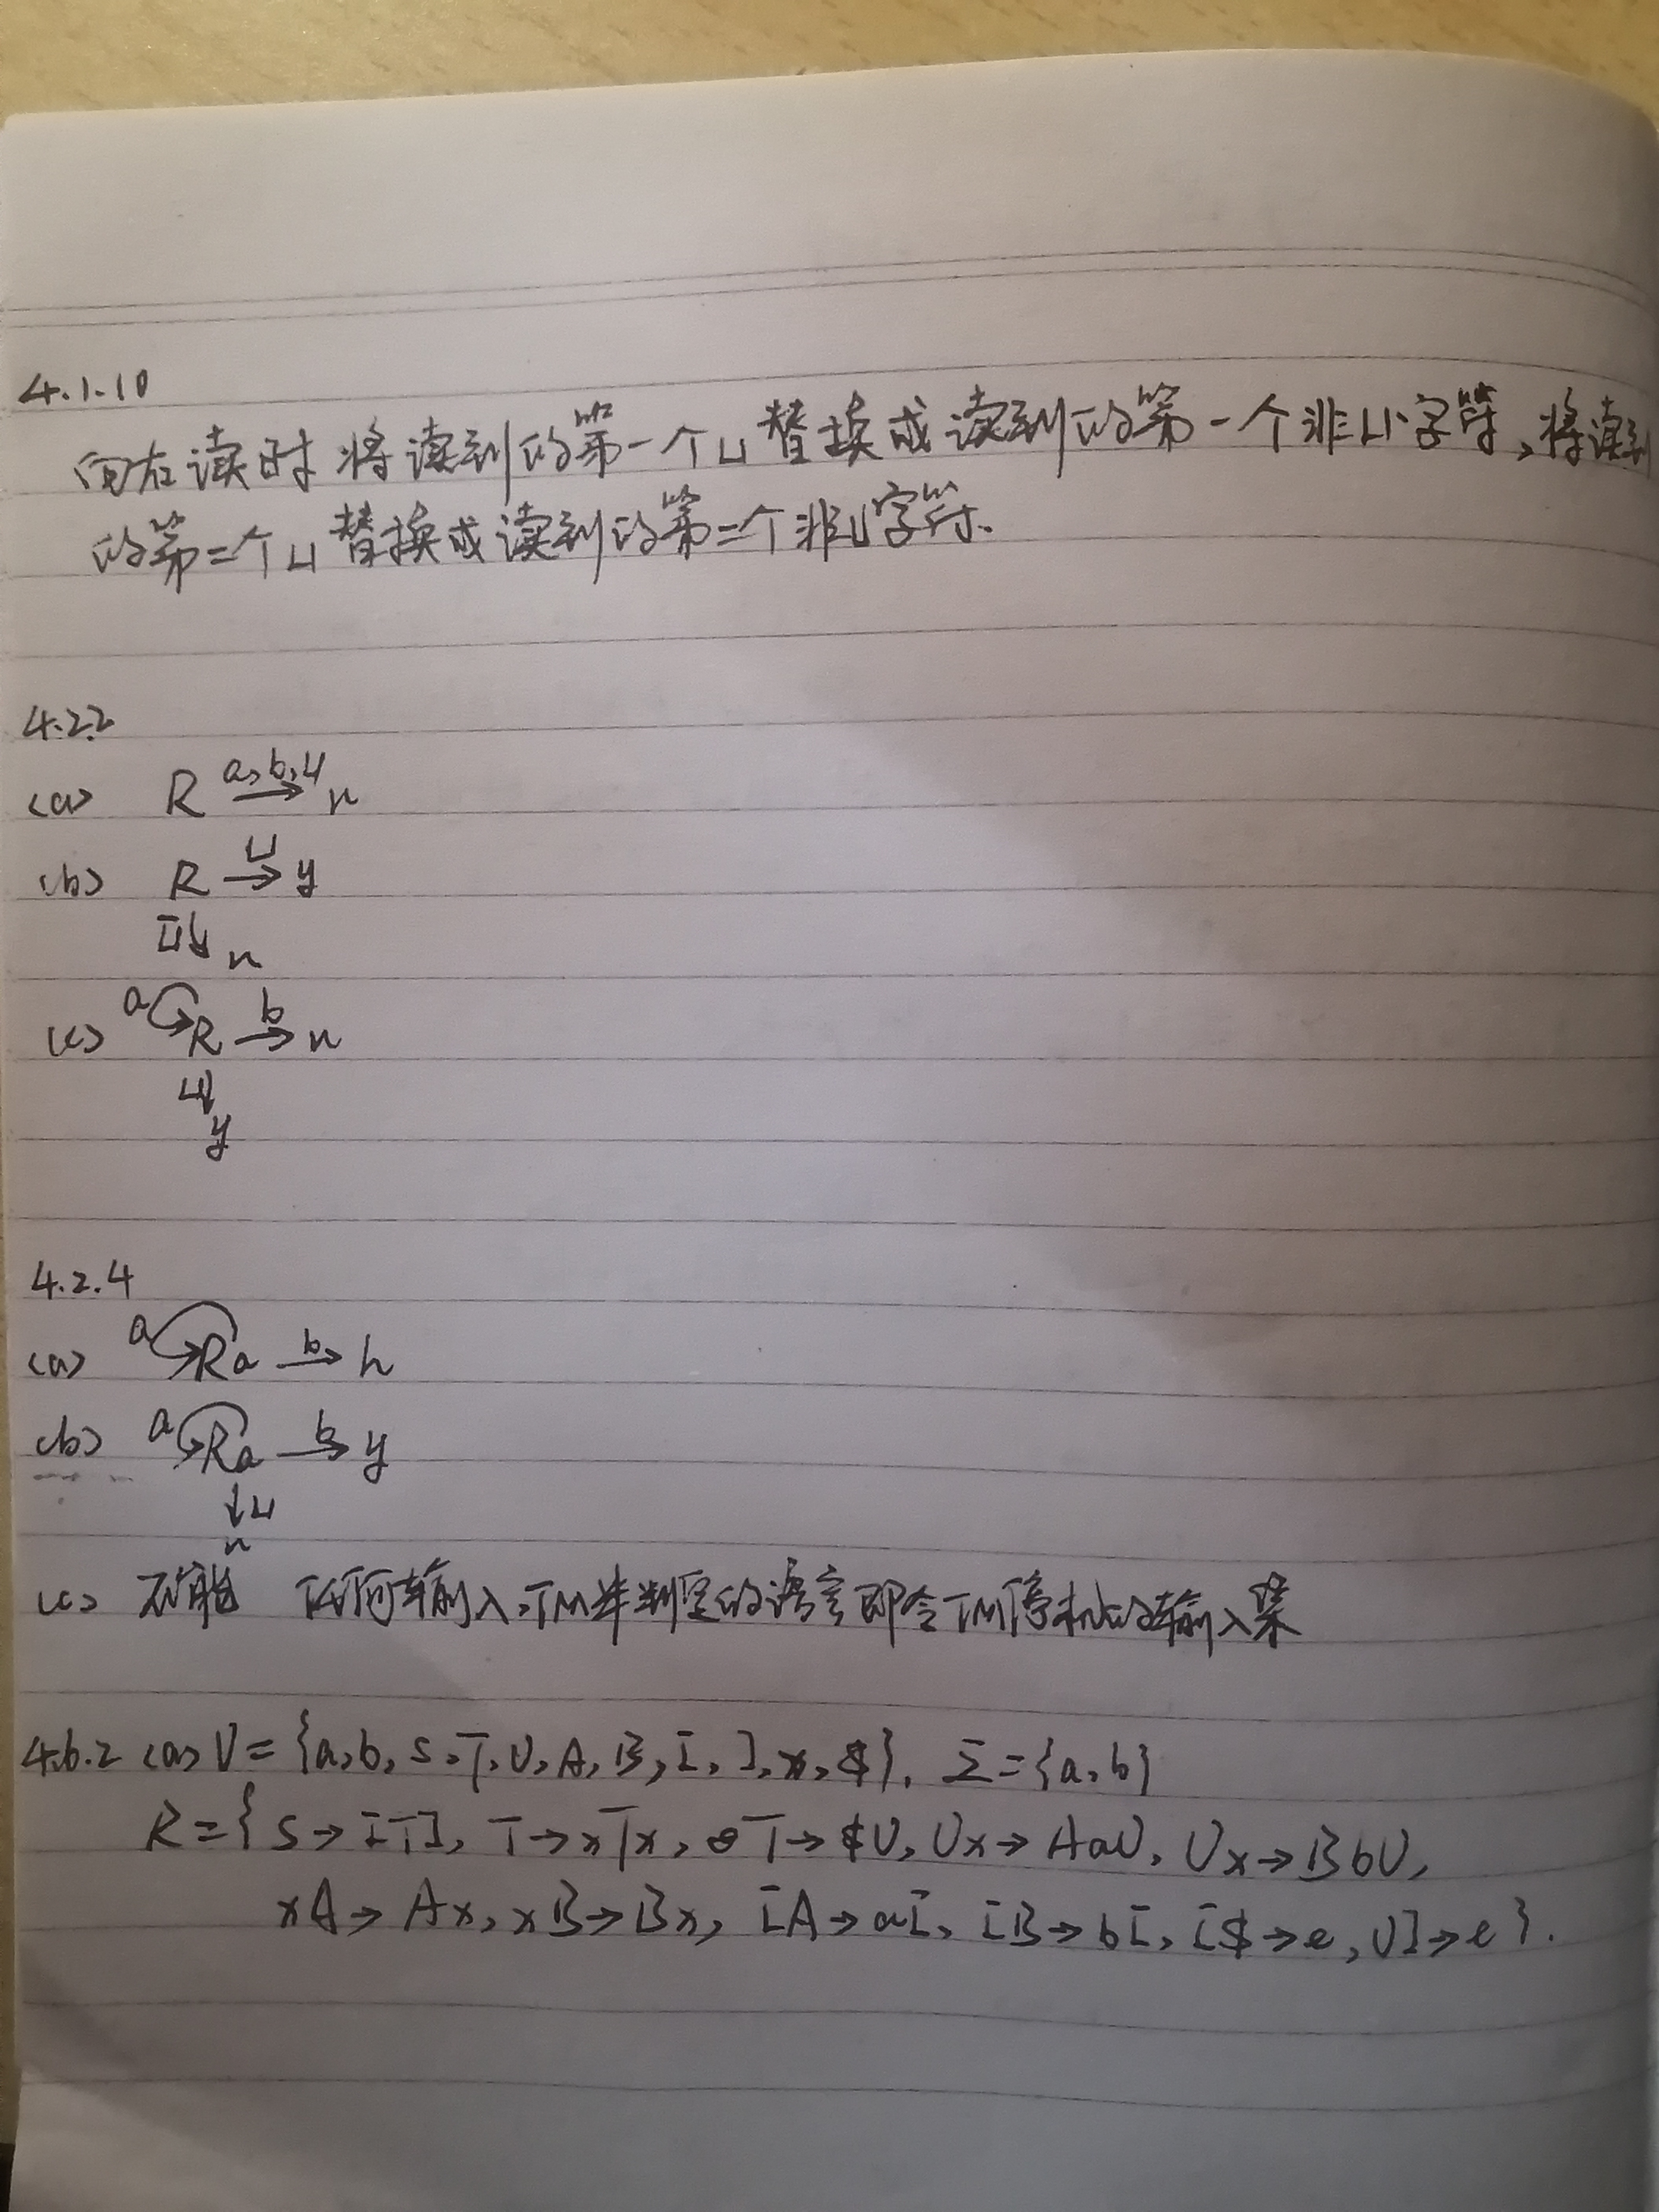 4.1.10
向右读时将读到的第一个⊔替换成读到的第一个非⊔字符,将读到
的第二个⊔替换成读到的第二个非⊔字符.
4.2.2
(a) R a,b,⊔→ n
(b) R ⊔→ y
⊔̅↓ n
(c) a↻R b→ n
⊔↓
y
4.2.4
(a) a↻Ra b→ h
(b) a↻Ra b→ y
↓⊔
n
(c) 不能 任何输入,TM半判定的语言即令TM停机的输入集
4.6.2 (a) V={a,b,S,T,U,A,B,[,],x,$}, Σ={a,b}
R={S→[T], T→xTx, T→$U, Ux→AaU, Ux→BbU,
xA→Ax, xB→Bx, [A→a[, [B→b[, [$→e, U]→e}.